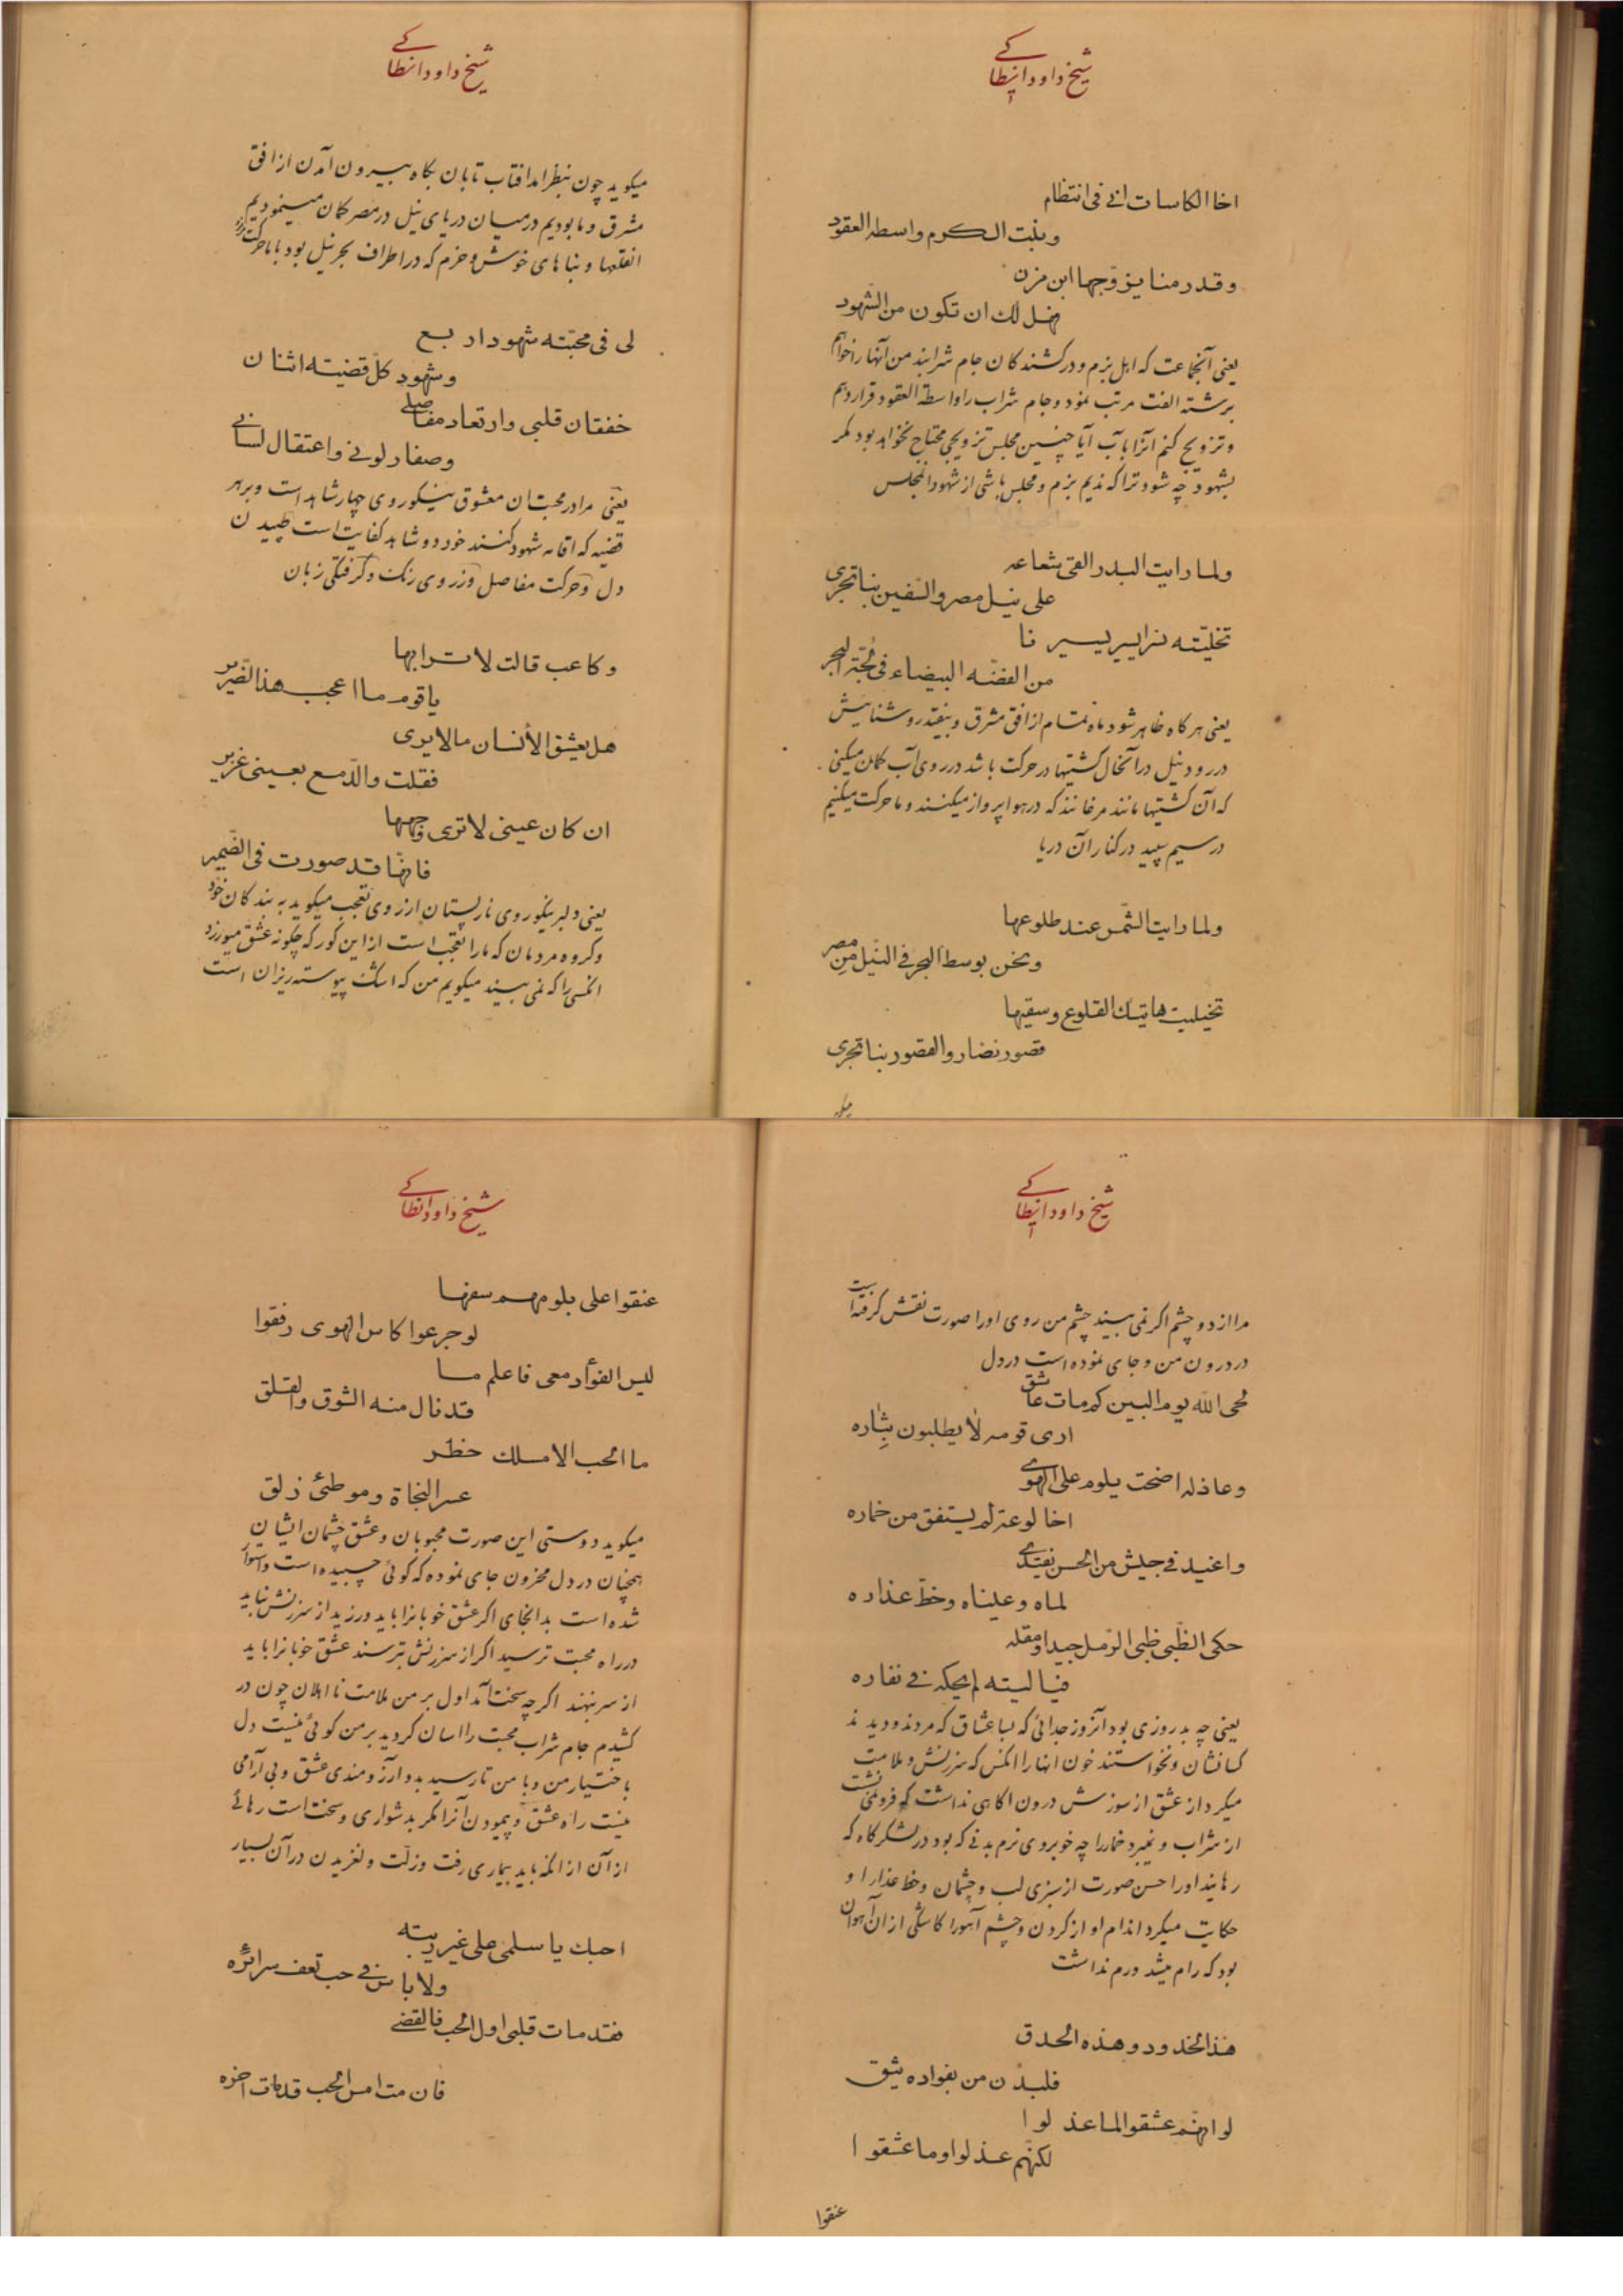 شیخ داود انطاکے
اخا الکاسات انے فی انتظام
وبنت الکرم واسطه العقود
وقد رمنا یزوّجها ابن مزن
فهل لك ان تکون من الشهود
یعنی آنجماعت که اهل بزم ودرکشندکان جام شرابند من آنها را خواهم
برشته الفت مرتب نمود وجام شراب را واسطة العقود قرار دهم
وتزویج کنم آنرا بآب آیا چنین مجلس تزویجی محتاج نخواهد بود مکر
بشهود چه شود ترا که ندیم بزم ومجلس باشی از شهود المجلس
ولما رایت البدر القی شعاعه
علی نیل مصر والسّفین بنا تجری
تخلیّته نرابیر یسیر نا
من الفضّه البیضاء فی لجّة البحر
یعنی هرکاه ظاهر شود ماه تمام از افق مشرق وبیفتد روشنائیش
در رود نیل در آنحال کشتیها در حرکت باشد در روی آب کمان میکنی
که آن کشتیها مانند مرغانند که در هوا پرواز میکنند وما حرکت میکنیم
در سیم سپید در کنار آن دریا
ولما رایت الشّمس عند طلوعها
ونحن بوسط البحر فی النّیل من مصر
تخیلیت هاتیك القلوع وسقیها
قصور نضار والقصور بنا تجری
میکوید
شیخ داود انطاکے
میکوید چون بنظر امد افتاب تابان بکاه بیرون آمدن از افق
مشرق وما بودیم درمیان دریای نیل در مصر کمان مینمودیم
انقلعها وبناهای خوش وخرم که در اطراف بحر نیل بود با ما حرکت
لی فی محبّته شهود اربع
وشهود کلّ قضیّته اثنان
خفقان قلبی وارتعاد مفاصلے
وصفار لونے واعتقال لسانے
یعنی مرا در محبت ان معشوق نیکوروی چهار شاهد است وبرهر
قضیه که اقامه شهود کنند خود دو شاهد کفایت است طپیدن
دل وحرکت مفاصل وزروی رنک وکرفتکی زبان
وکاعب قالت لاترابها
یا قوم ما اعجب هذا الضّریر
هل یعشق الأنسان ما لا یری
فقلت والدّمع بعینی غزیر
ان کان عینی لا تری وجهها
فانهّا قد صورت فی الضّمیر
یعنی دلبر نیکوروی نارپستان ازروی تعجب میکوید به بندکان خود
وکروه مردمان که ما را تعجب است از این کور که چکونه عشق میورزد
انکسی را که نمی بیند میکویم من که اشک پیوسته ریزان است
شیخ داود انطاکے
مرا از دو چشم اکر نمی بیند چشم من روی او را صورت نقش کرفته است
در درون من وجای نموده است در دل
لحی الله یوم البین کم مات عاشق
اری قومه لا یطلبون بثاره
وعاذله اضحت یلوم علی الهوی
اخا لوعة لم یستفق من خماره
واغید فے جیش من الحسن یفتدی
لماه وعیناه وخطّ عذاره
حکی الظّبی ظبی الرّمل جیدا ومقله
فیا لیته لم یحکه فے نفاره
یعنی چه بد روزی بود آنروز جدائی که بسا عشاق که مردند ودیدند
کسانشان ونخواستند خون انها را انکس که سرزنش وملامت
میکرد از عشق از سوزش درون اکاهی نداشت که فرو نمی نشست
از شراب ونمیبرد خمار را چه خوبروی نرم بدنی که بود در لشکرکاه که
رهانید او را حسن صورت از سبزی لب وچشمان وخط عذار او
حکایت میکرد اندام او از کردن وچشم آهو را کاشکی از ان آهوان
بود که رام میشد ورم نداشت
هذ الخدود وهذه الحدق
فلیدن من بفواده یثق
لو انهّم عشقوا لما عذلوا
لکنهّم عذلوا وما عشقوا
عنقوا
شیخ داود انطاکے
عنقوا علی بلومهم سفها
لو جرعوا کاس الهوی رفقوا
لیس الفوأد معی فاعلم ما
قد نال منه الشوق والقلق
ما الحب الا مسلك خطر
عسر النجاة وموطئ زلق
میکوید دوستی این صورت محبوبان وعشق چشمان ایشان
همچنان در دل محزون جای نموده که کوئی چسبیده است واستوار
شده است بدانجای اکر عشق خوبانرا باید ورزید از سرزنش نباید
در راه محبت ترسید اکر از سرزنش بترسند عشق خوبانرا باید
از سر بنهند اکرچه سخت آمد اول بر من ملامت نااهلان چون در
کشیدم جام شراب محبت را اسان کردید بر من کوئی نیست دل
باختیار من وبا من تا رسید بدو آرزومندی عشق وبی آرامی
نیست راه عشق وپیمودن آنرا مکر بدشواری وسخت است رهائے
از آن از انکه باید بیماری رفت وزلّت ولغزیدن در آن بسیار
احبك یا سلمی علی غیر ریبه
ولا باس فے حب تعف سرائره
فقد مات قلبی اول الحب فالقضے
فان مت امس الحب قد مات اخره